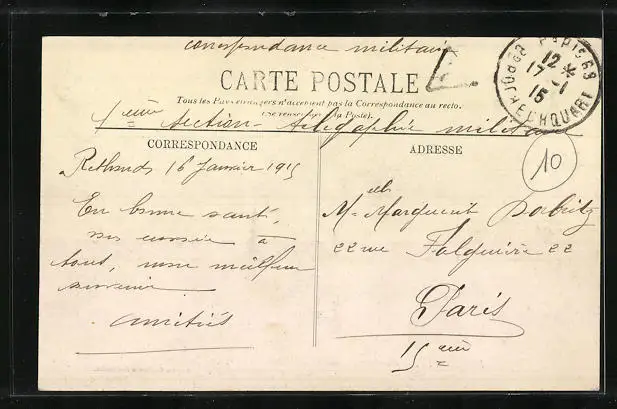 correspondance militaire
CARTE POSTALE
Tous les Pays étrangers n'acceptent pas la Correspondance au recto.
(Se renseigner à la Poste).
1ème section télégraphie militaire
CORRESPONDANCE
ADRESSE
PARIS 68
12 *
17 -1
15
10
16 Janvier 1915
En bonne santé,
à
tous, mon meilleur
souvenir
amitiés
Melle Marguerite
22 rue Falguière 22
Paris
15ème